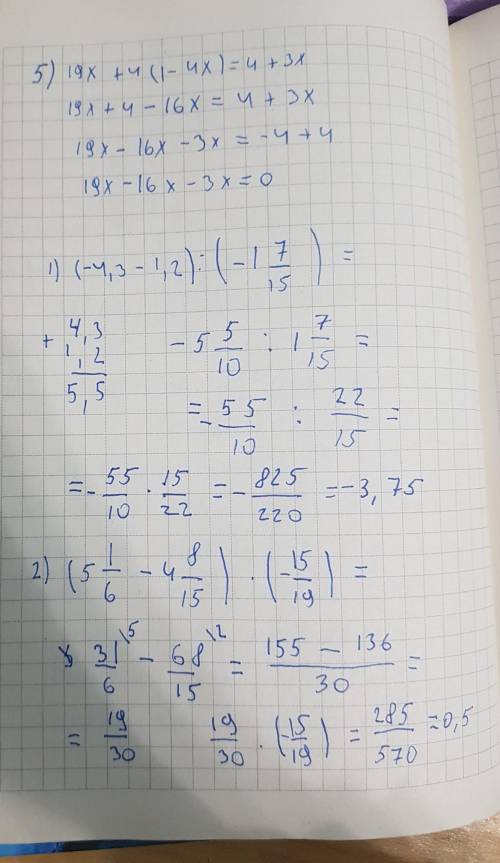 5) 19x + 4(1 - 4x) = 4 + 3x
19x + 4 - 16x = 4 + 3x
19x - 16x - 3x = -4 + 4
19x - 16x - 3x = 0
1) (-4,3 - 1,2) : (-1 7/15) =
+ 4,3
1,2
5,5
- 5 5/10 : 1 7/15 =
= - 55/10 : 22/15 =
= - 55/10 · 15/22 = - 825/220 = -3,75
2) (5 1/6 - 4 8/15) · (-15/19) =
31/6 \5 - 68/15 \2 = 155 - 136/30 =
= 19/30 19/30 · (-15/19) = 285/570 = 0,5